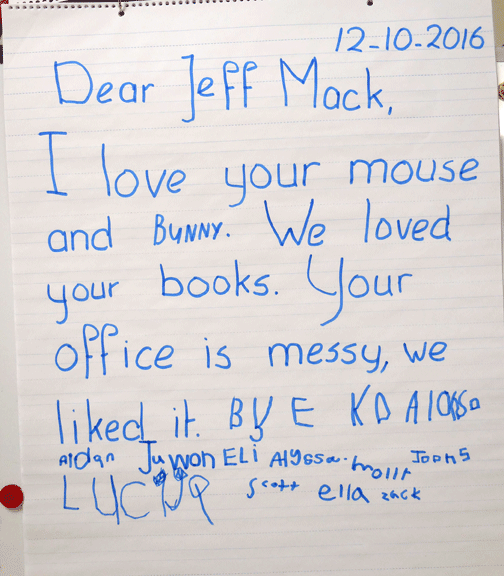 12-10-2016
Dear Jeff Mack,
I love your mouse
and BUNNY. We loved
your books. Your
office is messy, we
liked it. BY E KD
Aidan Juwon ELi Alyssa. molly
scott ella zack